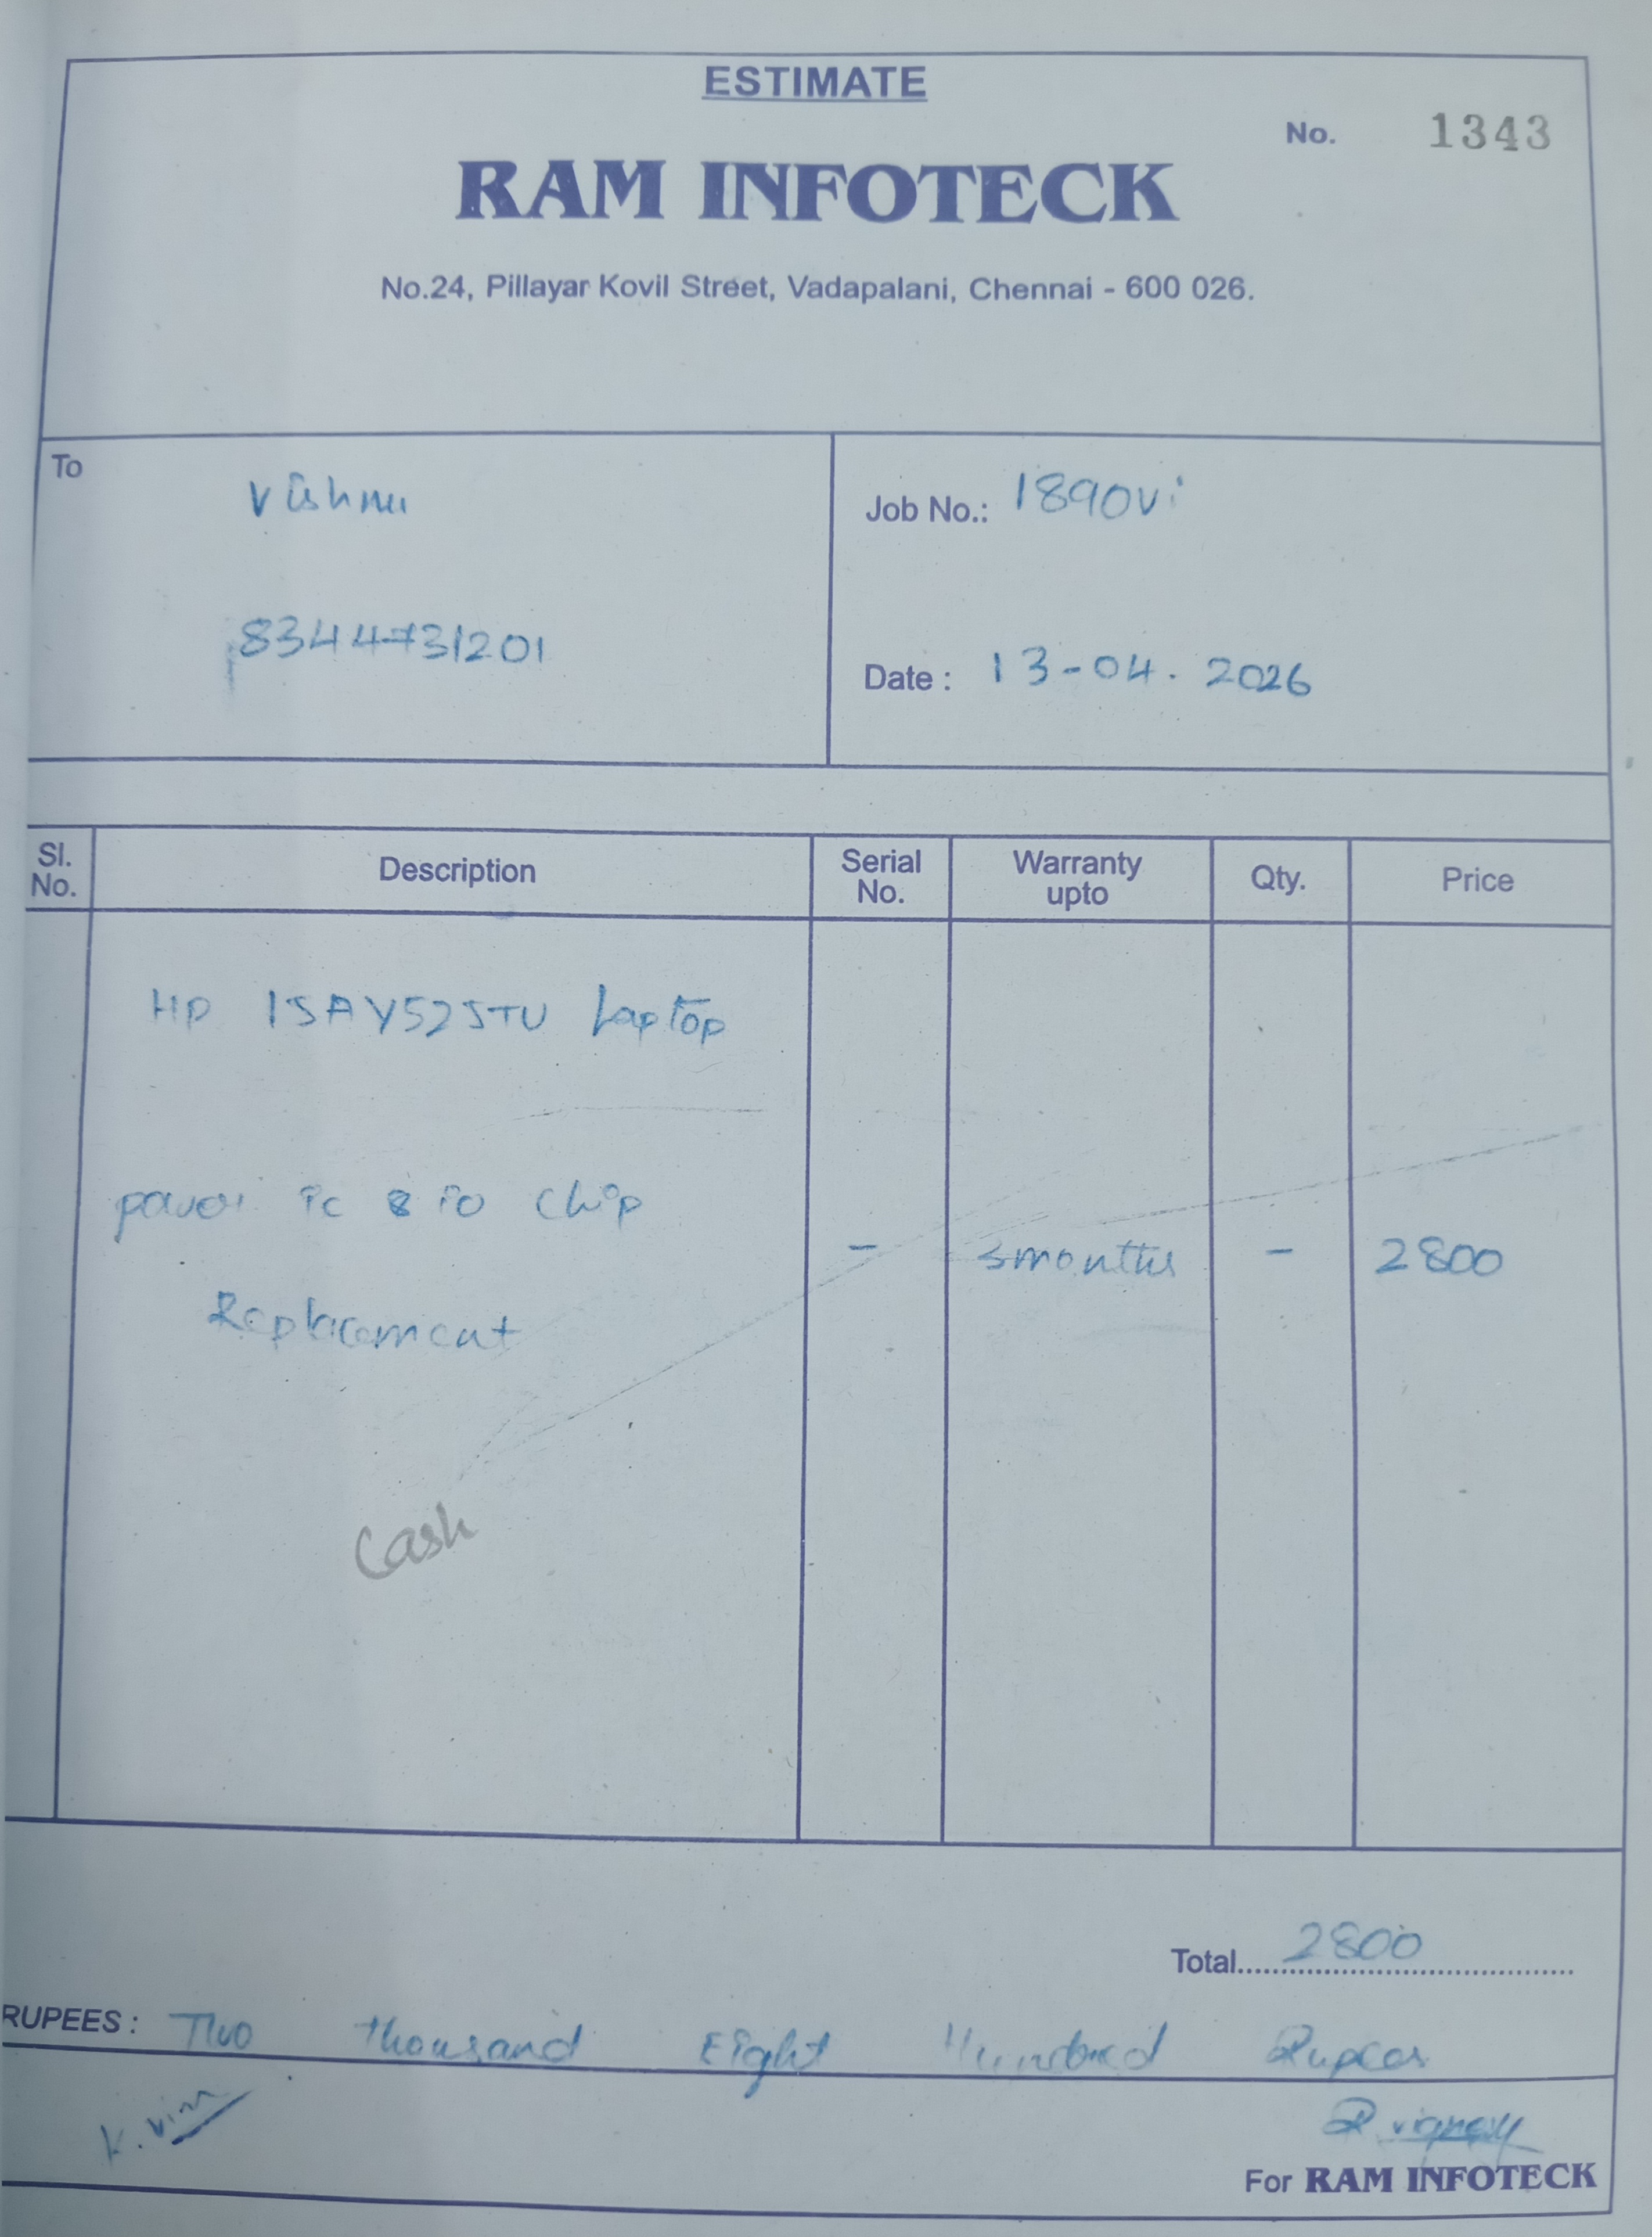 ESTIMATE
No. 1343
RAM INFOTECK
No.24, Pillayar Kovil Street, Vadapalani, Chennai - 600 026.
To Vishnu
Job No.: 1890vi
8344731201
Date : 13-04. 2026
Sl. No. Description Serial No. Warranty upto Qty. Price
HP 15AY525TU Laptop
power ic & io chip
- 3months - 2800
Replacement
Cash
Total 2800
RUPEES : Two thousand Eight Hundred Rupees
K.
For RAM INFOTECK